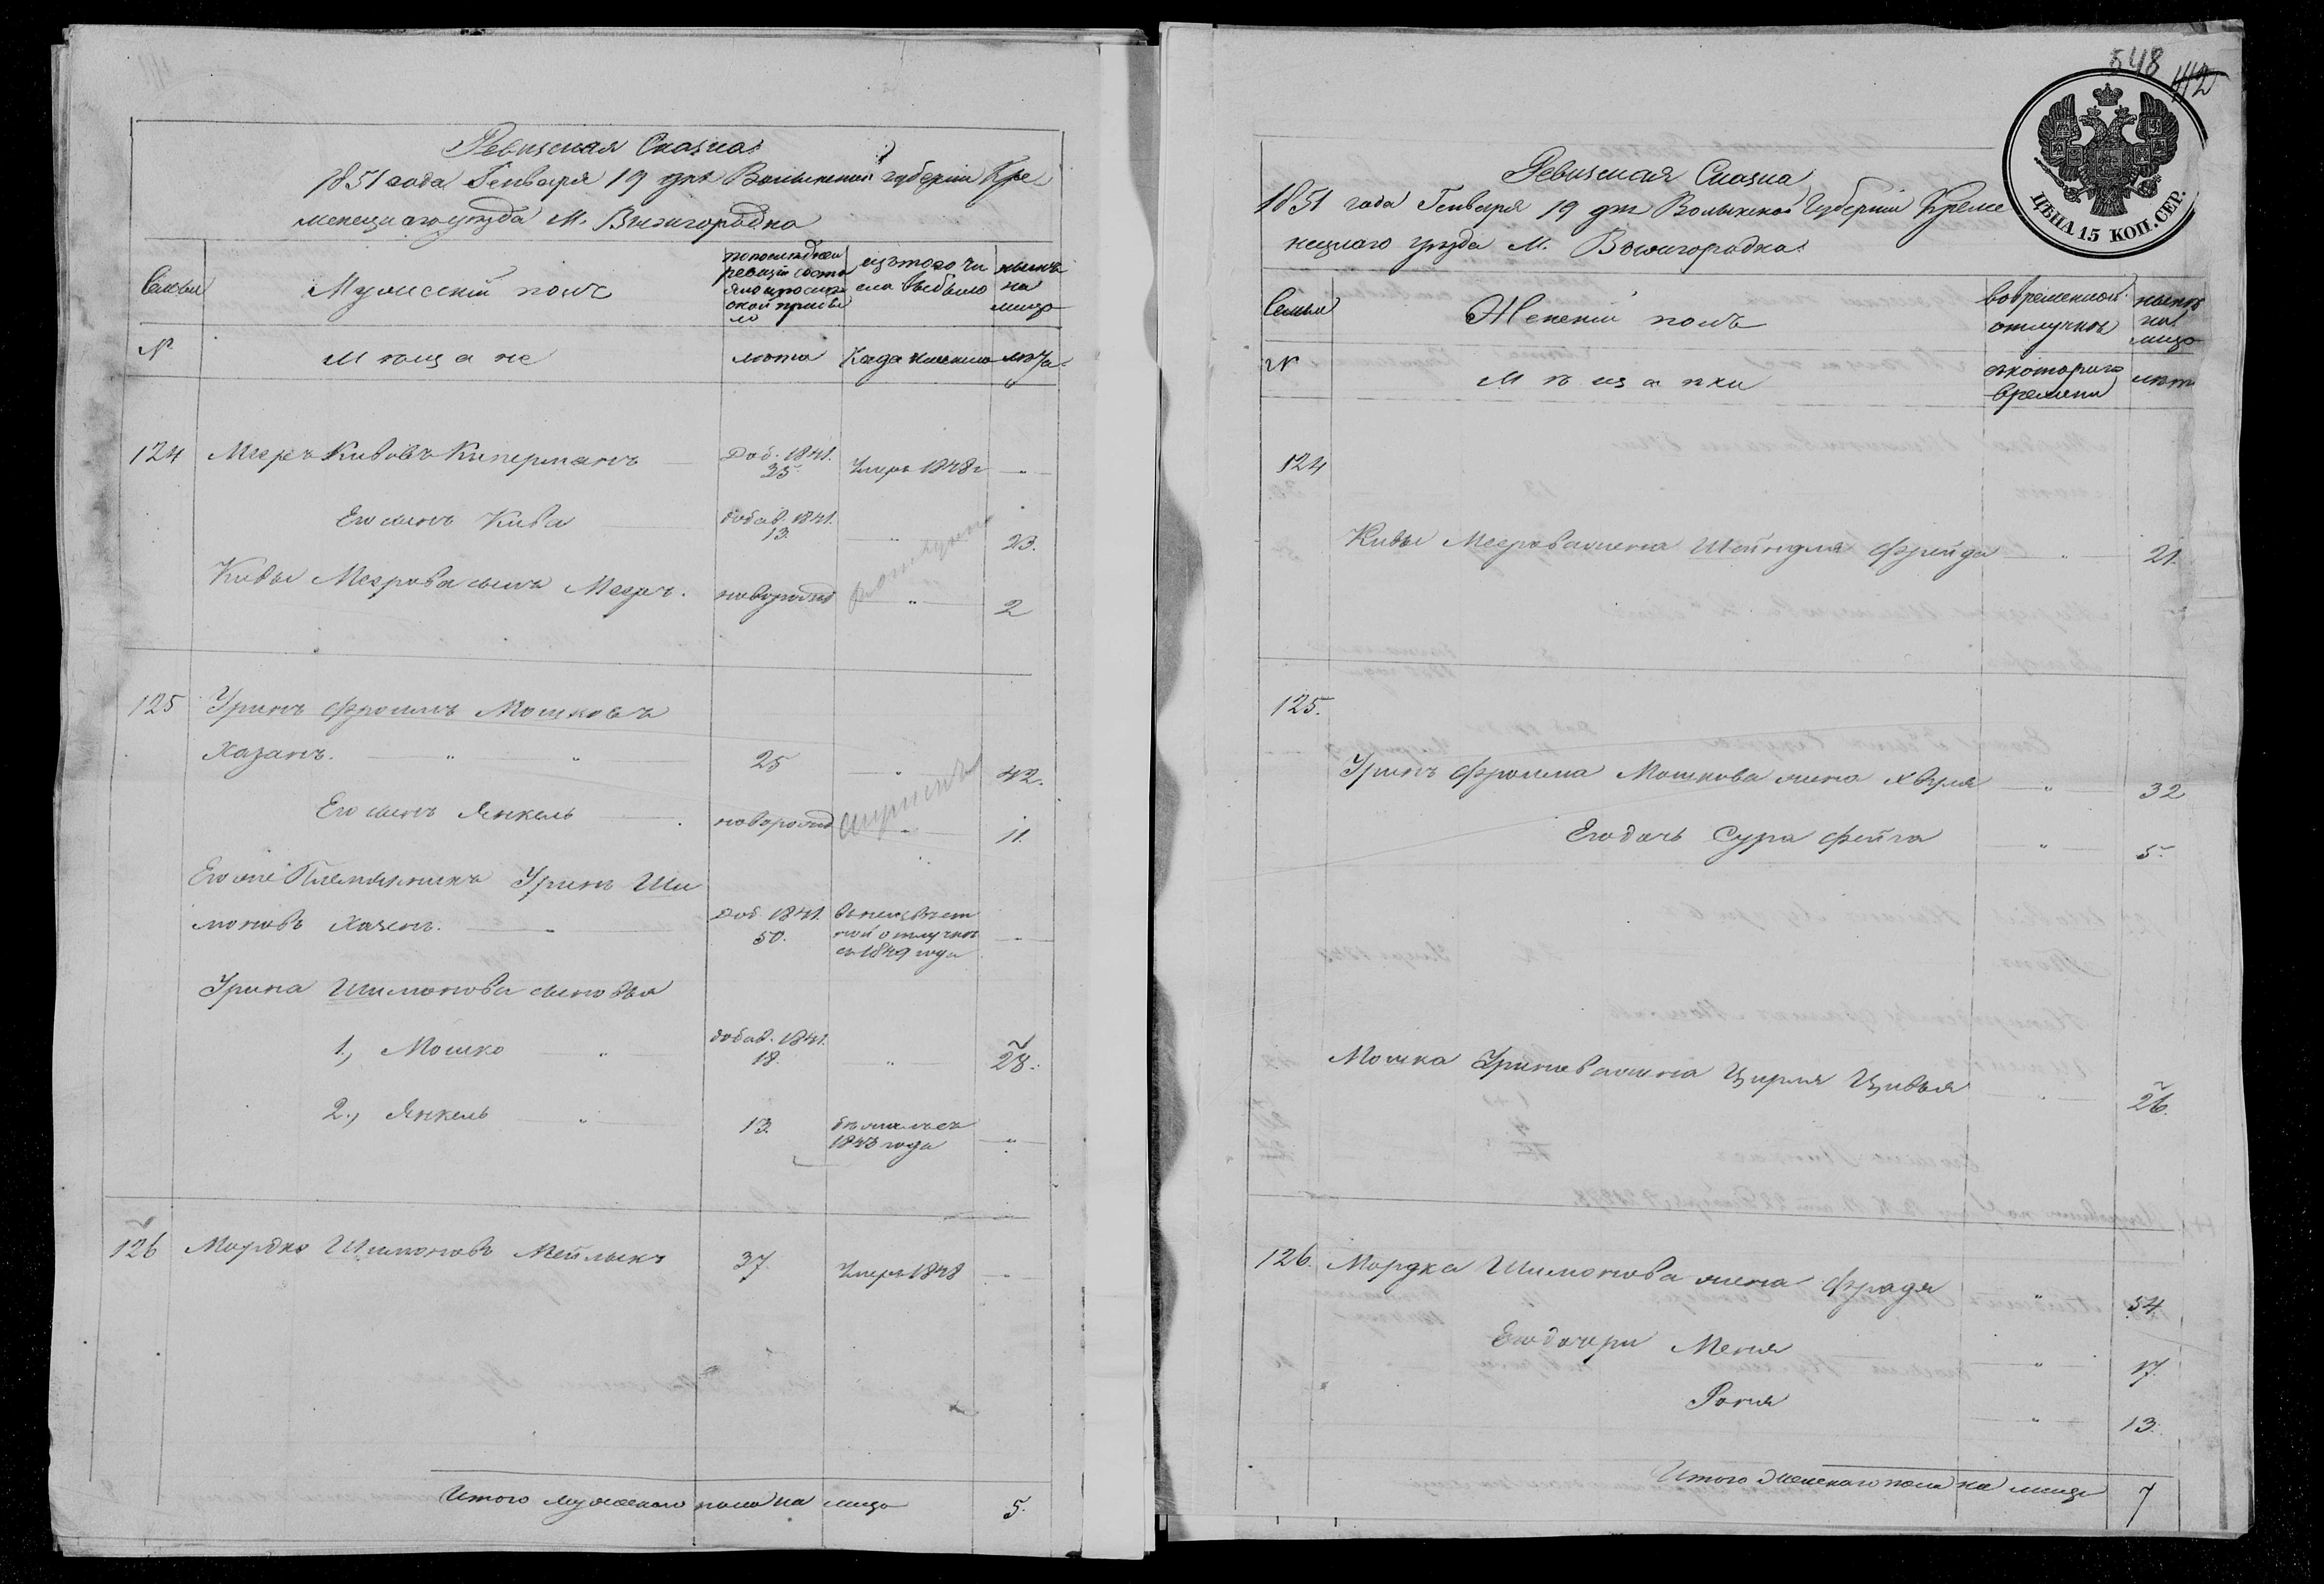 Ревизская Сказка
1851 года Генваря 19 дня Волынской губернии Кре
менецкаго уезда М. Вышгородка
Семьи
Мужеский полъ
по последней
ревизіи состо
яло и после
оной прибы
ло
изъ того чи
сла выбыло
ныне
на
лицо
№
Мѣщане
лета
Когда именно
лѣта
124 Меер Кивовъ Киперманъ Доб. 1841. 35 Умеръ 1848 г "
Его сынъ Кива добав. 1841. 13. " 23.
Кивы Меерова сынъ Меер. новорожд " 2
125 Уринъ Фроимъ Мошковъ
Хазанъ. " " 25 " 42.
Его сынъ Янкель новорожд " 11.
Его же Племянникъ Уринъ Ши
моновъ Хазенъ. " Доб 1841. 50. въ неизвѣст
ной отлучкѣ
съ 1849 года "
Урина Шимонова сыновья
1., Мошко " добав. 1841. 18. " 28.
2., Янкель " 13. бежалъ съ
1843 года "
126 Мордко Шимоновъ Мейлыкъ 37. Умеръ 1848 "
Итого мужескаго пола на лицо 5.
548
412
ЦѢНА 15 КОП. СЕР.
Ревизская Сказка
1851 года Генваря 19 дня Волынской Губерніи Креме
нецкаго уезда М. Вышгородка
Семьи
Женскій полъ
во временной
отлучкѣ
ныне
на
лицо
№
Мѣщанки
съ котораго
времени
лѣта
124
Кивы Меерова жена Шейндля Фрейда " 21.
125.
Уринъ Фроима Мошкова жена Хвуля " 32
Его дочь Сура Фейга " 5.
Мошка Уринова жена Цирля Цивья " 26.
126. Мордка Шимонова жена Фрадя " 54.
Его дочери Меня " 17.
Рония " 13.
Итого женскаго пола на лицо 7